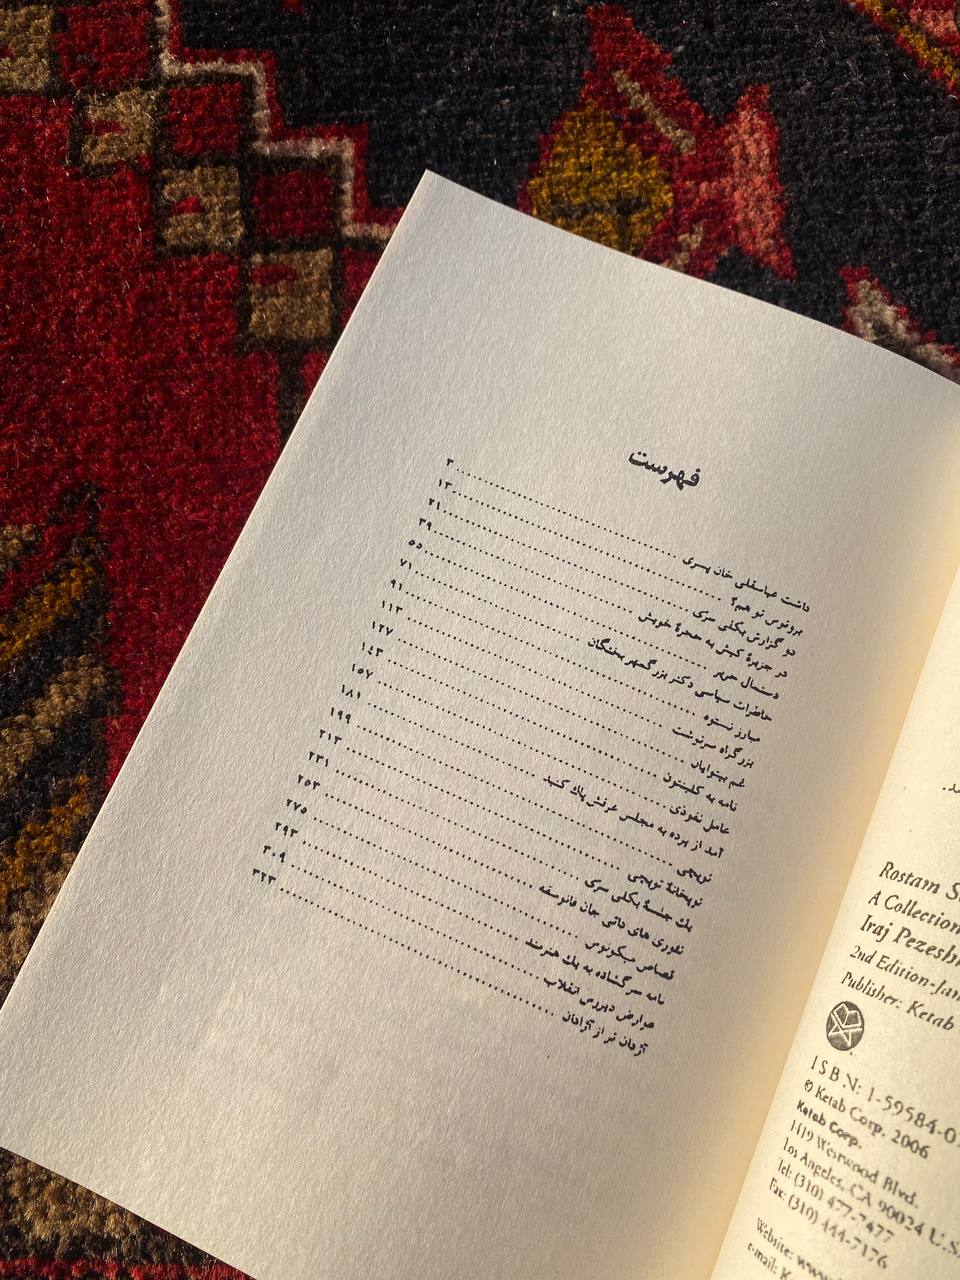 فهرست
داشت عباسقلی خان پسری ۳
بروتوس تو هم؟ ۱۳
دو گزارش بکلی سری ۲۱
در جزیرهٔ کیش به حجرهٔ خویش ۳۹
دستمال حریر ۵۵
خاطرات سیاسی دکتر بزرگمهر بختگان ۷۱
مبارز نستوه ۹۱
بزرگراه سرنوشت ۱۱۳
غم بینوایان ۱۲۷
نامه به کلینتون ۱۴۳
عامل نفوذی ۱۵۷
آمد از پرده به مجلس عرقش پاک کنید ۱۸۱
توپچی ۱۹۹
توپخانهٔ توپچی ۲۱۳
یک جلسهٔ بکلی سری ۲۳۱
تئوری های جان فانوسقه ۲۵۳
قصاص میکونوس ۲۷۵
نامه سرگشاده به یک هنرمند ۲۹۳
عوارض دیررس انقلاب ۳۰۹
تر از ۳۲۳
Rostam
A Collection
Iraj
2nd Edition-
Publisher: Ketab
ISBN: 1-59584-0
© Ketab Corp. 2006
Ketab Corp.
1419 Westwood Blvd.
Los Angeles, CA 90024 U.S.
Tel: (310) 477-7477
Fax: (310) 444-7176
Website: www
e-mail: